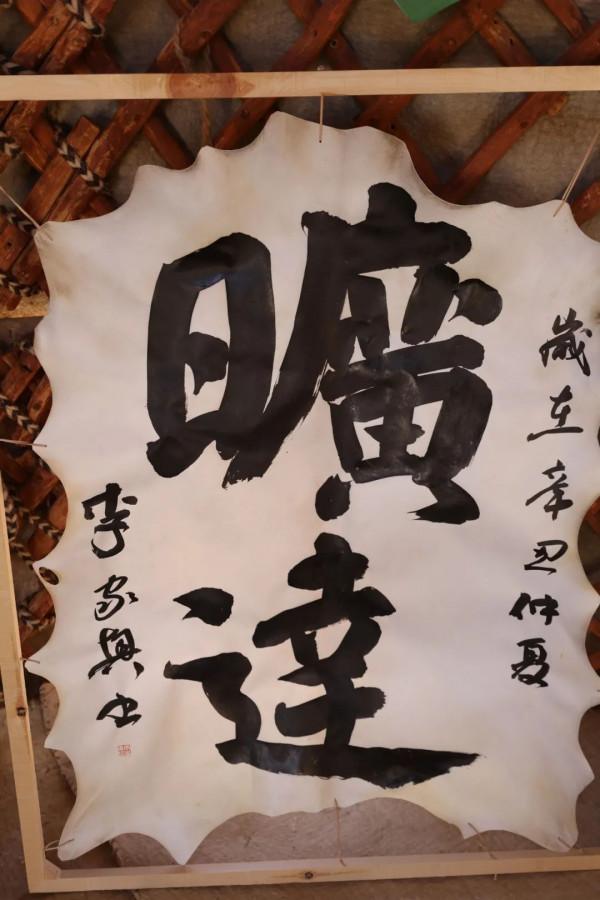 歲在辛丑仲夏
曠達
李家興书